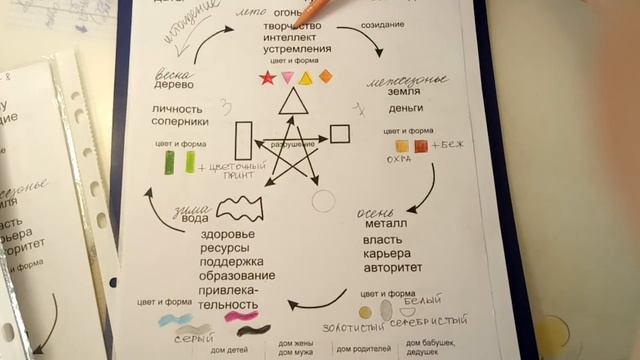 истощение
лето огонь
творчество
интеллект
устремления
созидание
цвет и форма
весна
дерево
личность
соперники
цвет и форма
+ цветочный
принт
межсезонье
земля
деньги
цвет и форма
+ беж
охра
разрушение
зима
вода
здоровье
ресурсы
поддержка
образование
привлека-
тельность
цвет и форма
серый
осень
металл
власть
карьера
авторитет
цвет и форма
белый
золотистый серебристый
дом детей
дом жены
дом мужа
дом родителей
дом бабушек,
дедушек